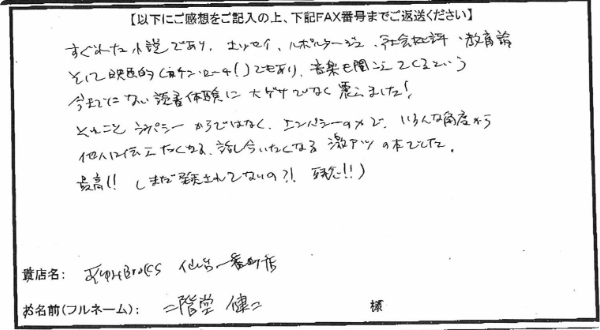 【以下にご感想をご記入の上、下記FAX番号までご返送ください】
すぐれた小説であり、エッセイ、ルポルタージュ、社会批評、教育論
そして映画的(ボケン・ローチ!)でもあり、音楽も聞こえてくるという
今までにない読書体験に大ゲサでなく震えました!
それこそシンパシーからではなく、エンパシーのメで、いろんな角度から
他人に伝えたくなる、話し合いたくなる激アツの本でした。
最高!! (まだ発売されてないの?! 残念!!)
貴店名: 金港堂BOOKS 仙台一番町店
お名前(フルネーム): 二階堂 健二 様